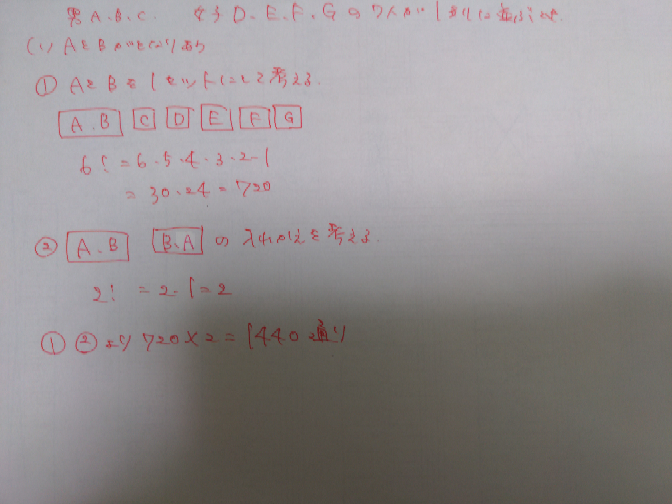 男A.B.C. 女子D、E、F、Gの7人が1列に並ぶとき.
(1) AとBがとなりあう
① AとBを1セットにして考える.
A.B C D E F G
6! = 6・5・4・3・2・1
= 30・24 = 720
② A.B B.A の入れかえを考える.
2! = 2・1 = 2
① ②より 720×2 = 1440通り